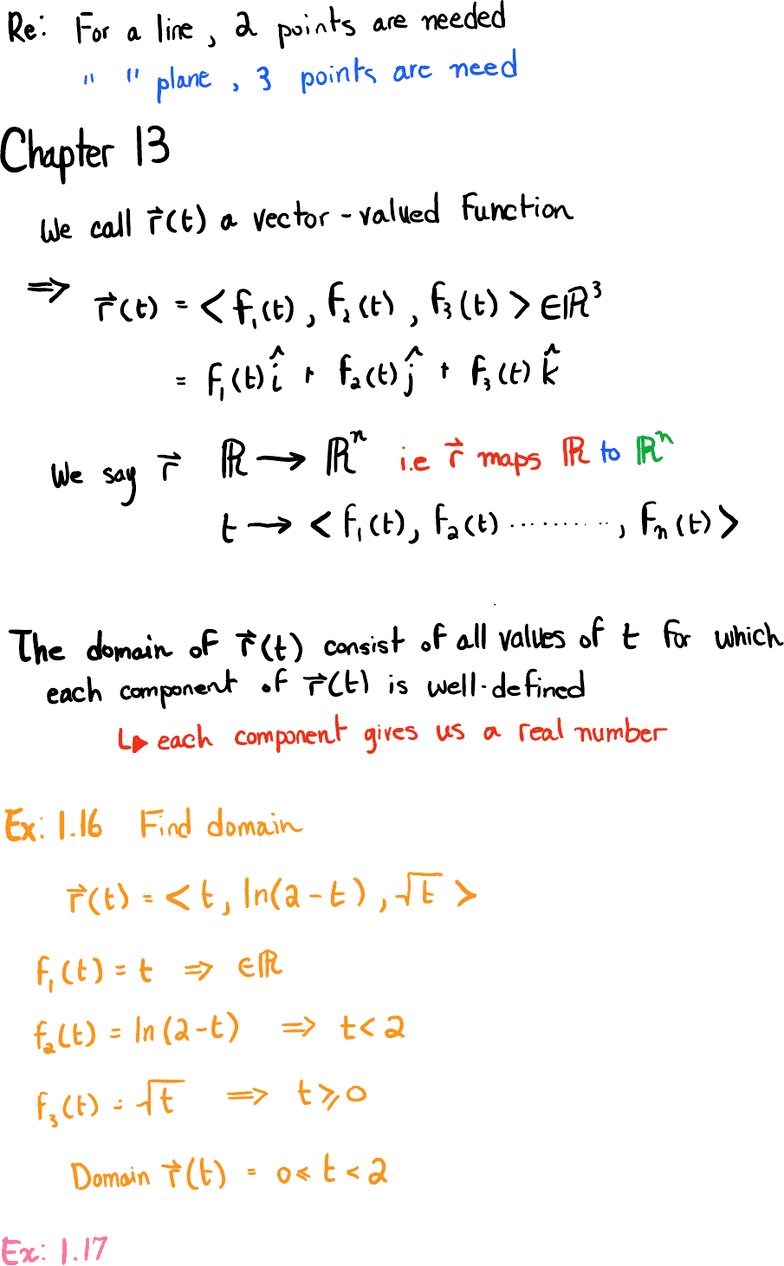 Re: For a line, 2 points are needed
" " plane, 3 points are need
Chapter 13
We call r⃗(t) a vector-valued function
⇒ r⃗(t) = <f₁(t), f₂(t), f₃(t)> ∈ ℝ³
= f₁(t)î + f₂(t)ĵ + f₃(t)k̂
We say r⃗ ℝ → ℝⁿ i.e r⃗ maps ℝ to ℝⁿ
t → <f₁(t), f₂(t) .........., fₙ(t)>
The domain of r⃗(t) consist of all values of t for which
each component of r⃗(t) is well-defined
↳ each component gives us a real number
Ex: 1.16 Find domain
r⃗(t) = <t, ln(2-t), √t>
f₁(t) = t ⇒ ∈ℝ
f₂(t) = ln(2-t) ⇒ t<2
f₃(t) = √t ⇒ t⩾0
Domain r⃗(t) = 0⩽t<2
Ex: 1.17